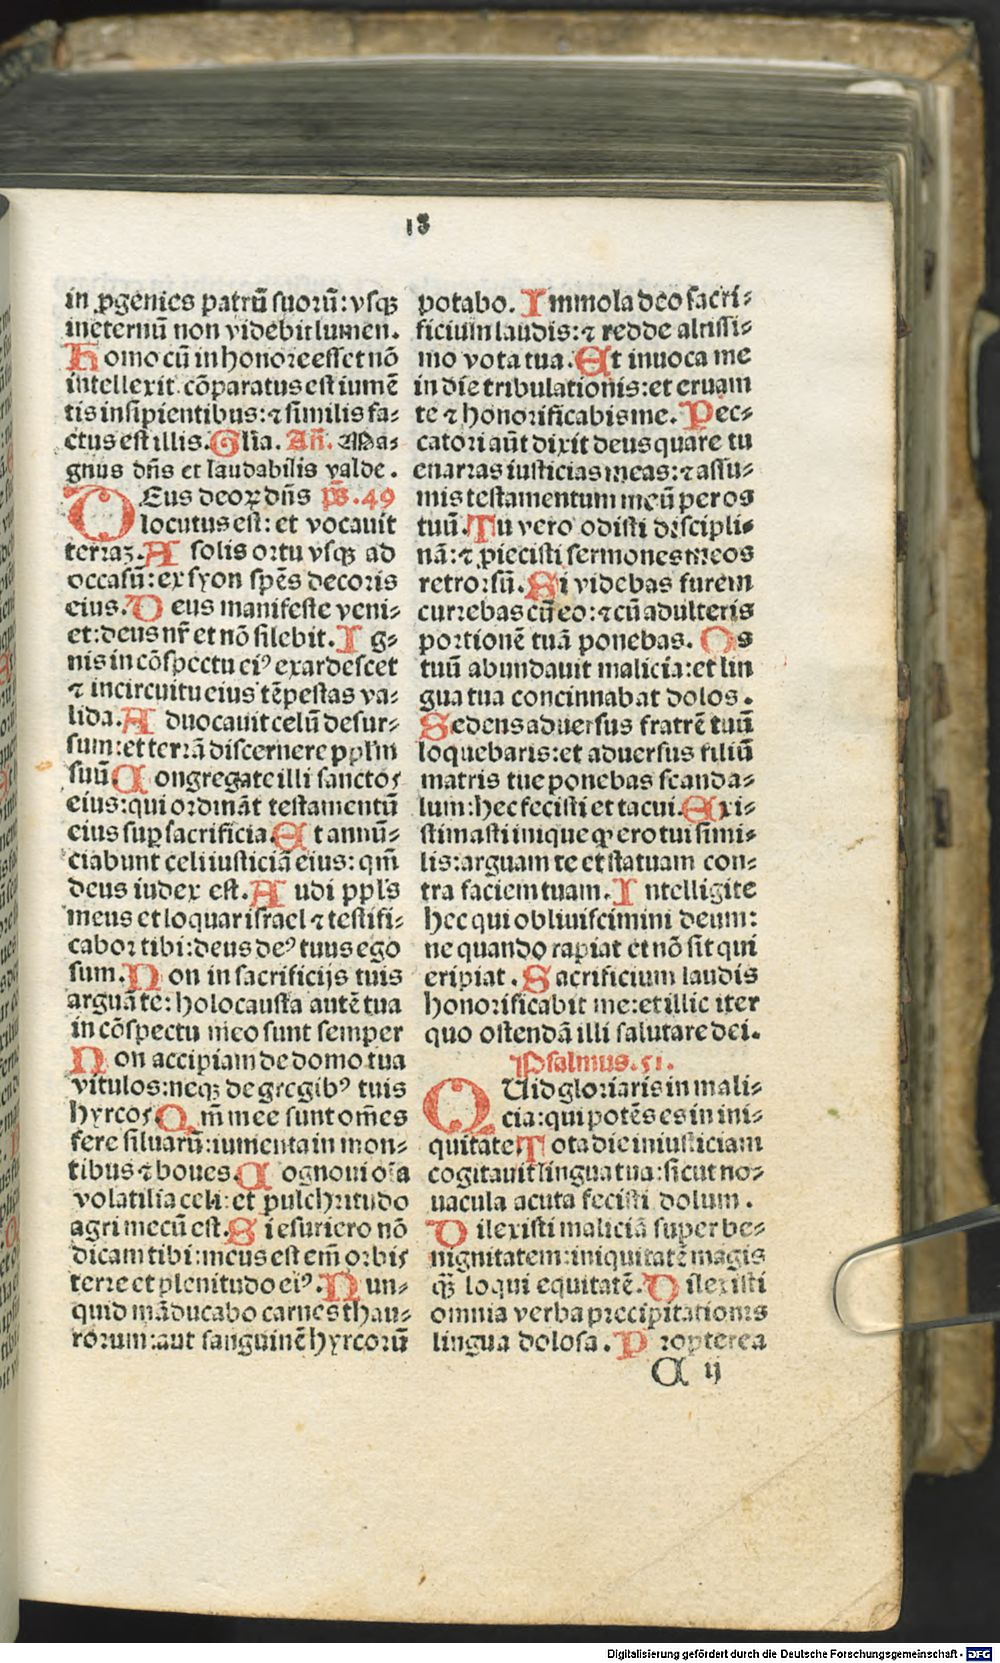 13
in ꝓgenies patrū suorū: vsqꝫ
ineternū non videbit lumen.
Homo cū in honore esset nō
intellexit cōparatus est iumē
tis insipientibus: ⁊ similis fa⸗
ctus est illis. Glīa. Añ. Ma⸗
gnus dn̄s et laudabilis valde.
DEus deoꝝ dn̄s ps̄. 49
locutus est: et vocauit
terraꝫ. A solis ortu vsqꝫ ad
occasū: ex syon spēs decoris
eius. Deus manifeste veni⸗
et: deus nr̄ et nō silebit. Ig⸗
nis in cōspectu eiꝰ exardescet
⁊ incircuitu eius tēpestas va⸗
lida. Aduocauit celū desur⸗
sum: et terrā discernere ppl'm
suū. Congregate illi sanctos
eius: qui ordināt testamentū
eius suꝑ sacrificia. Et annū⸗
ciabunt celi iusticiā eius: qm̄
deus iudex est. Audi ppl's
meus et loquar israel ⁊ testifi⸗
cabor tibi: deus deꝰ tuus ego
sum. Non in sacrificijs tuis
arguā te: holocausta autē tua
in cōspectu meo sunt semper
Non accipiam de domo tua
vitulos: neqꝫ de gregibꝰ tuis
hyrcos. Qm̄ mee sunt om̄es
fere siluarū: iumenta in mon⸗
tibus ⁊ boues. Cognoui oīa
volatilia celi: et pulchritudo
agri mecū est. Si esuriero nō
dicam tibi: meus est em̄ orbis
terre et plenitudo eiꝰ. Nun⸗
quid māducabo carnes thau⸗
rorum: aut sanguinē hyrcorū
potabo. Immola deo sacri⸗
ficium laudis: ⁊ redde altissi⸗
mo vota tua. Et inuoca me
in die tribulationis: et eruam
te ⁊ honorificabis me. Pec⸗
catori aūt dixit deus quare tu
enarras iusticias meas: ⁊ assu⸗
mis testamentum meū per os
tuū. Tu vero odisti discipli⸗
nā: ⁊ ꝓiecisti sermones meos
retrorsū. Si videbas furem
currebas cū eo: ⁊ cū adulteris
portionē tuā ponebas. Os
tuū abundauit malicia: et lin
gua tua concinnabat dolos.
Sedens aduersus fratrē tuū
loquebaris: et aduersus filiū
matris tue ponebas scanda⸗
lum: hec fecisti et tacui. Exi⸗
stimasti inique ꝙ ero tui simi⸗
lis: arguam te et statuam con⸗
tra faciem tuam. Intelligite
hec qui obliuiscimini deum:
ne quando rapiat et nō sit qui
eripiat. Sacrificium laudis
honorificabit me: et illic iter
quo ostendā illi salutare dei.
Psalmus. 51.
QUid gloriaris in mali⸗
cia: qui potēs es in ini⸗
quitate Tota die iniusticiam
cogitauit lingua tua: sicut no⸗
uacula acuta fecisti dolum.
Dilexisti maliciā super be⸗
nignitatem: iniquitatē magis
q̄ꝫ loqui equitatē. Dilexisti
omnia verba precipitationis
lingua dolosa. Propterea
C ij
Digitalisierung gefördert durch die Deutsche Forschungsgemeinschaft - DFG